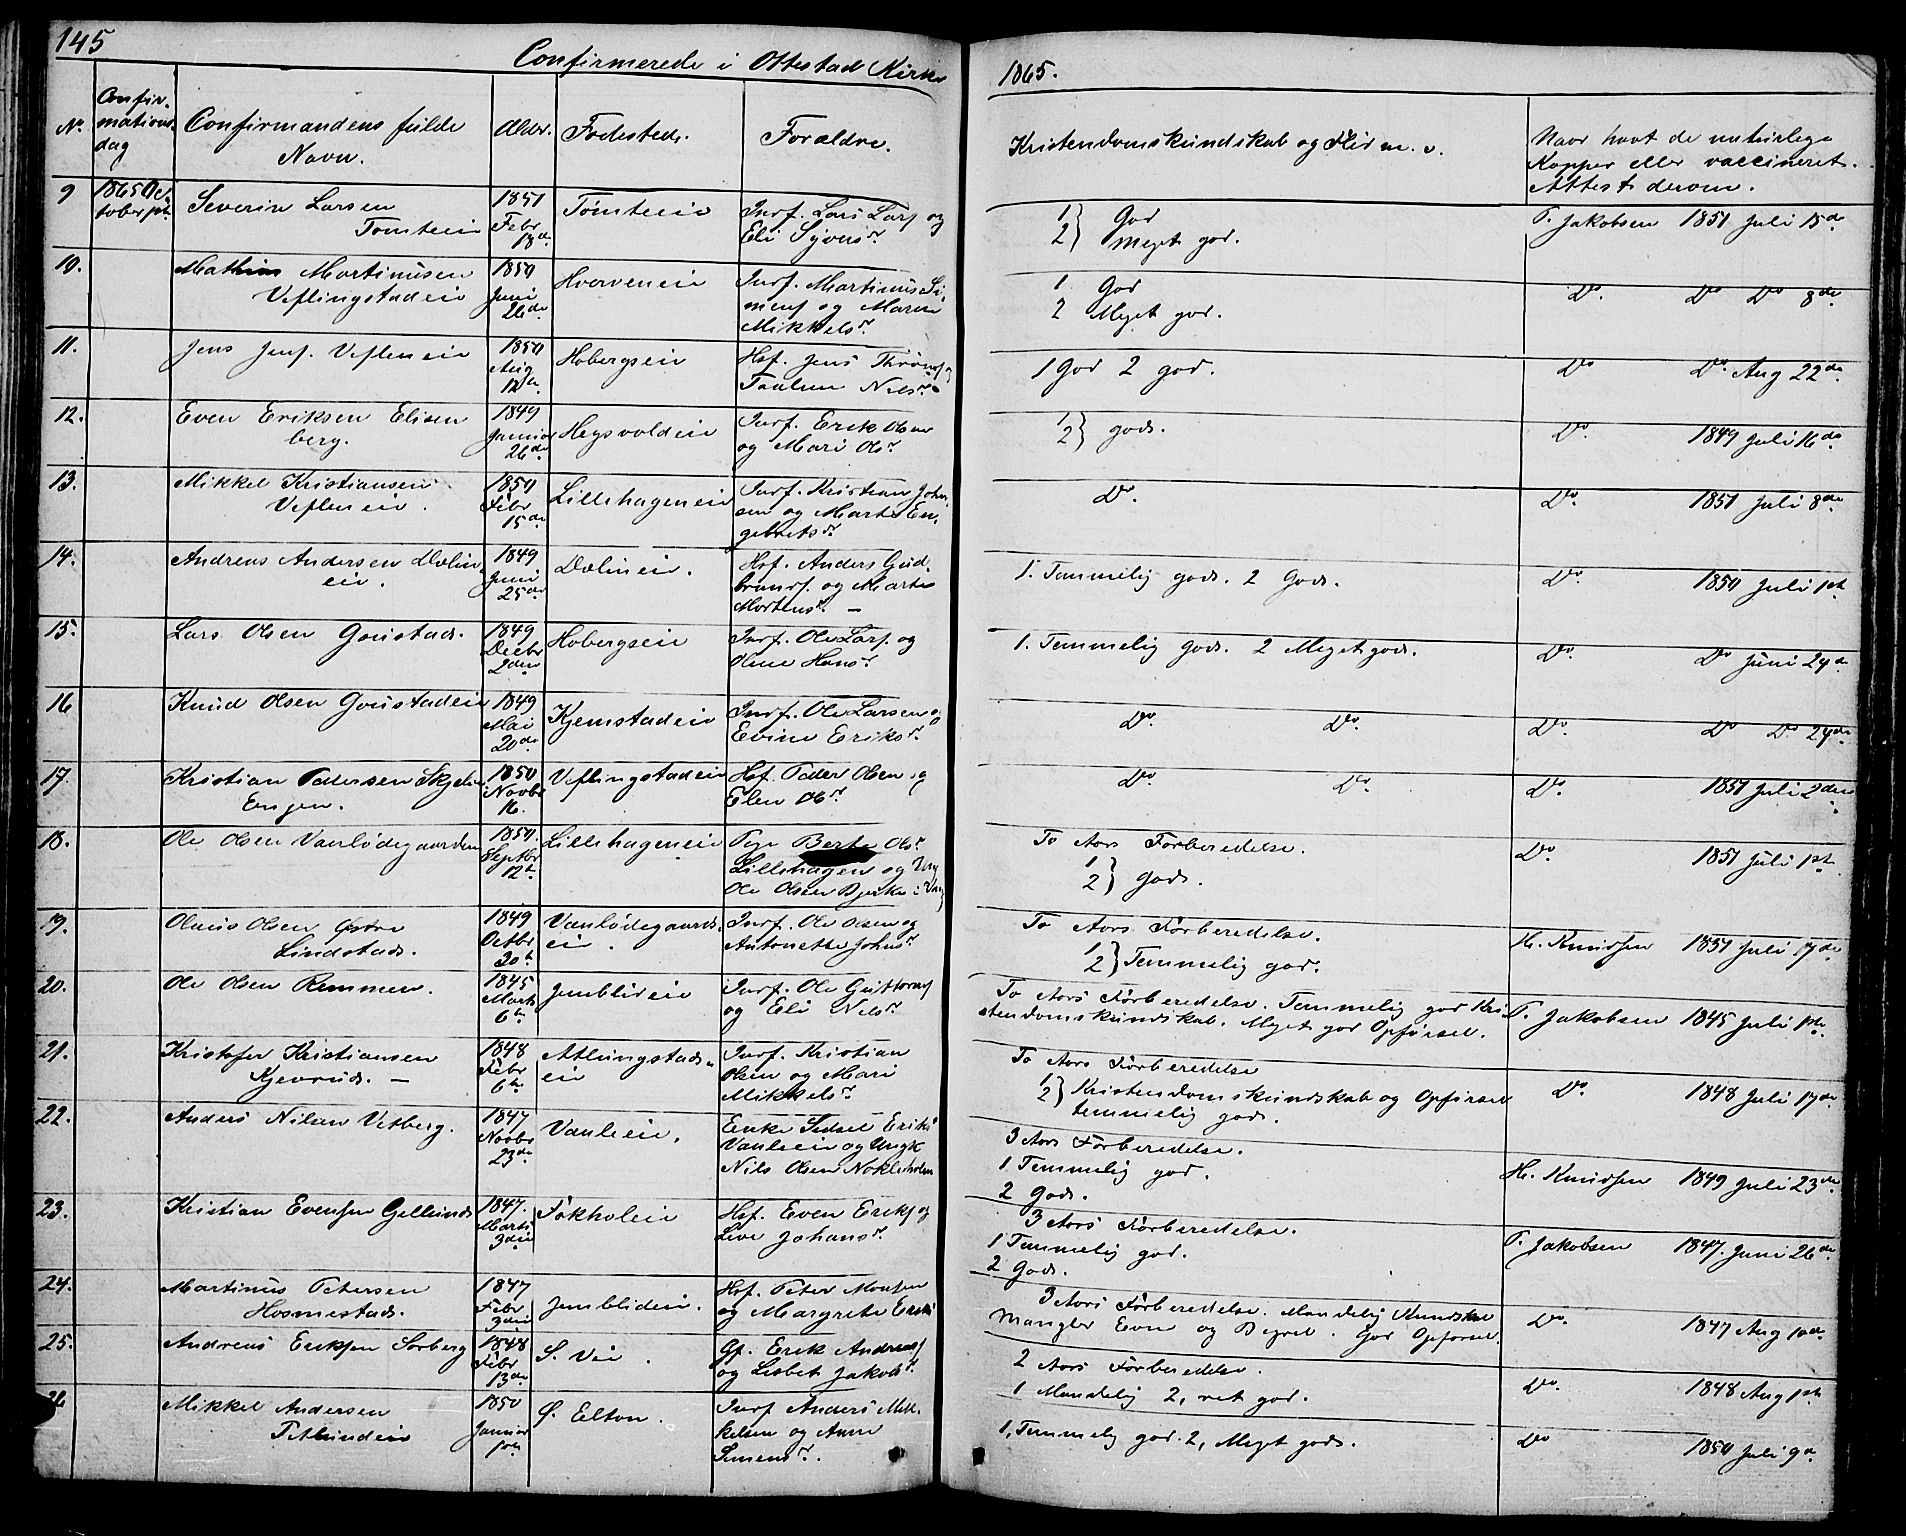 145
Confirmerede i Ottestad Kirke 1865.
No.
Confir-
mations-
dag
Confirmandens fulde
Navn.
Alder.
Fødested.
Forældre.
Kristendomskundskab og Flid m. v.
Naar havt de naturlige
Kopper eller vaccineret.
Attest derom.
9 1865 Oc-
tober 1st.
Severin Larsen
Tomteeie
1851
Febr
18de
Tomteeie
Indf. Lars Lars. og
Eli Syversd.
1} God
2} Meget god.
T. Jakobsen 1851 Juli 15de
10.
Mathias Martinusen
Veflingstadeie
1850
Juni
26de
Hvorveneie
Indf. Martinus Si-
mens. og Maren
Mikkelsd.
1 God
2 Meget god.
Do. Do Do 8de
11.
Jens Jens. Vefleneie
1850
Aug
12te
Hobergseie
Hsf. Jens Thrønds. og
Pauline Nilsd.
1 God 2 god.
Do Do. Aug 22de
12.
Even Eriksen Elisen
berg.
1849
Januar
26de
Hegsvoldeie
Indf. Erik Olsen
og Mari Olsd.
1}
2} god.
Do. 1849 Juli 16de
13.
Mikkel Kristiansen
Vefleneie.
1850
Febr
15de
Lillehageneie
Indf. Kristian John
sen og Marte En-
gebretsd.
Do.
Do. 1851 Juli 8de
14.
Andreas Andersen Dælin
eie.
1849
Juni
25de
Dælineie.
Hsf. Anders Gud-
brands. og Marte
Mortensd. –
1. Temmelig god. 2 God.
Do. 1850 Juli 1st
15.
Lars Olsen Goustad.
1849
Decbr
2den
Hobergseie
Indf. Ole Lars. og
Oline Hansd.
1. Temmelig god. 2 Meget god.
Do. Do Juni 24de
16
Knud Olsen Goustadeie
1849
Mai
20de
Kjemstadeie
Indf. Ole Larsen og
Evine Eriksd.
Do. Do.
Do. Do Do 24de
17.
Kristian Pedersen Skjelin
Engen.
1850
Novbr
16.
Veflingstadeie
Hsf. Peder Olsen og
Elen Olsd.
Do. Do.
Do. 1851 Juli 2den
18.
Ole Olsen Vanlødegaarden
1850.
Septbr
12te
Lillehageneie
Pige Berte Olsd.
Lillehagen og Ung
Ole Olsen Bjerke i Vang
To Aars Forberedelse.
1}
2} God.
Do. 1851 Juli 1st.
19.
Olaus Olsen Østre
Lindstad.
1849
Octbr
30te
Vanlødegaards-
eie.
Indf. Ole Olsen og
Antonette Johnsd.
To Aars Forberedelse.
1}
2} Temmelig god.
H. Knudsen 1851 Juli 17de
20.
Ole Olsen Remmen.
1845
Marts
6te
Jenslieie
Indf. Ole Guttorms.
og Eli Nilsd.
To Aars Forberedelse. Temmelig god Kri
stendomskundskab. Meget god Opførsel.
T. Jakobsen 1845 Juli 1ste.
21.
Kristofer Kristiansen
Kjevrud. –
1848
Febr
6te
Atlungstads-
eie
Indf. Kristian
Olsen og Mari
Mikkelsd.
To Aars Forberedelse
1}
2} Kristendomskundskab og Opførsel
temmelig god.
Do. 1848 Juli 17de
22.
Anders Nilsen Vetberg.
1847
Novbr
23de
Vanleeie.
Enke Sidsel Eriksd
Vanleeie og Ungk
Nils Olsen Nokleholm
3 Aars Forberedelse.
1. Temmelig god.
2 God.
H. Knudsen 1849 Juli 23de
23.
Kristian Evensen Gellund
1847.
Marts
3die
Fokholeie
Hsf. Even Eriks. og
Live Johansd.
3 Aars Forberedelse.
1 Temmelig god.
2 God.
T. Jakobsen 1847. Juni 26de
24.
Martinus Petersen
Hosmestad.
1847
Febr
3die
Jenslideie.
Hsf. Peter Monsen
og Margrete Eriksd
3 Aars Forberedelse. Maadelig Kundskab
Mangler Evne og Begreb. God Opførsel.
Do. 1847 Aug 10de
25.
Andreas Eriksen Sørberg
1848
Febr
13de
S. Vie.
Gp. Erik Andreas.
og Lisbet Jakobsd.
2 Aars Forberedelse.
1 Maadelig 2, ret god.
Do. 1848 Aug 1st.
26
Mikkel Andersen
Petlundeie
1850
Januar
1ste
Ø. Elton.
Indf Anders Mik-
kelsen og Anne
Simensd.
1, Temmelig god. 2, Meget god.
Do 1850 Juli 9de